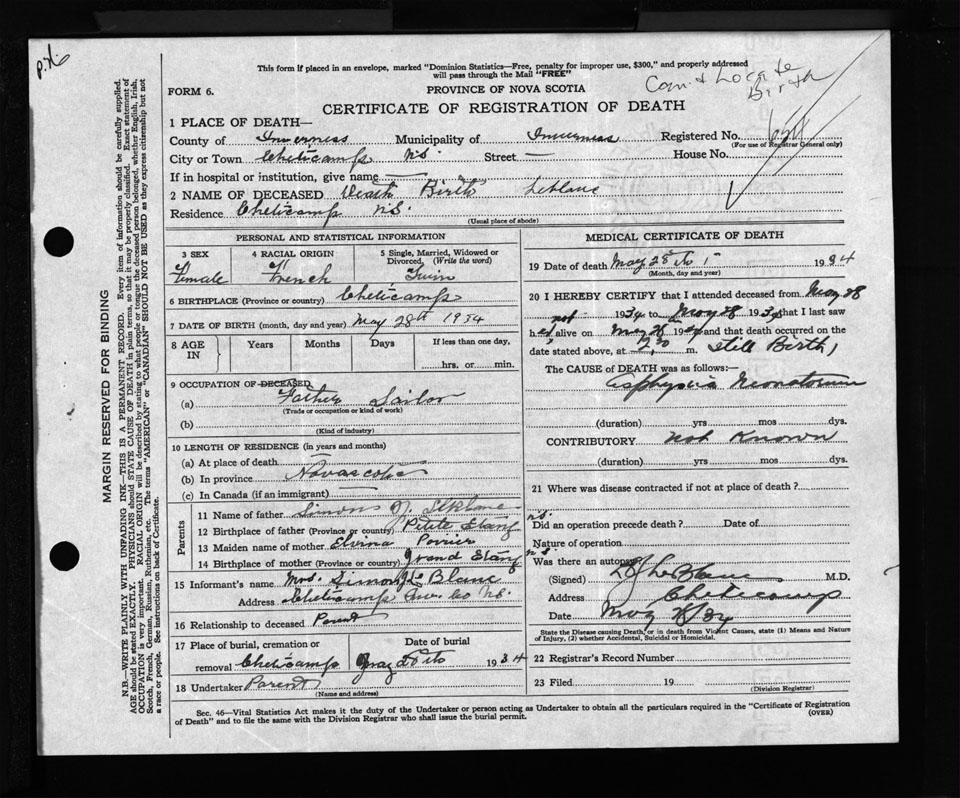 This form if placed in an envelope, marked "Dominion Statistics—Free, penalty for improper use, $300," and properly addressed
will pass through the Mail "FREE"
Locate
Birth
FORM 6.
PROVINCE OF NOVA SCOTIA
CERTIFICATE OF REGISTRATION OF DEATH
1 PLACE OF DEATH—
County of Inverness Municipality of Inverness Registered No.
(For use of Registrar General only)
City or Town Cheticamp N.S. Street — House No.
If in hospital or institution, give name —
2 NAME OF DECEASED Death Birth Leblanc
Residence Cheticamp N.S.
(Usual place of abode)
PERSONAL AND STATISTICAL INFORMATION
3 SEX
Female
4 RACIAL ORIGIN
French
5 Single, Married, Widowed or
Divorced, (Write the word)
Twin
6 BIRTHPLACE (Province or country) Cheticamp
7 DATE OF BIRTH (month, day and year) May 28th 1934
8 AGE IN
Years Months Days If less than one day,
hrs. or min.
9 OCCUPATION OF DECEASED
(a) Father Sailor
(Trade or occupation or kind of work)
(b)
(Kind of industry)
10 LENGTH OF RESIDENCE (in years and months)
(a) At place of death —
(b) In province Nova scotia
(c) In Canada (if an immigrant) —
Parents
11 Name of father Simon J.
12 Birthplace of father (Province or country) Petite Etang
13 Maiden name of mother Elvina Poirier
14 Birthplace of mother (Province or country) Grand Etang
15 Informant's name Mrs. Simon J Le Blanc
Address Cheticamp Inv. Co N.S.
16 Relationship to deceased Parent
17 Place of burial, cremation or Date of burial
removal Cheticamp May 1934
18 Undertaker Parent
(Name and address)
MEDICAL CERTIFICATE OF DEATH
19 Date of death May 28 1934
(Month, day and year)
20 I HEREBY CERTIFY that I attended deceased from May 28
not 1934 to May 28 1934 that I last saw
h alive on May 28 1934 and that death occurred on
date stated above, at 2,30 m. Still Birth
The CAUSE of DEATH was as follows:—
Asphyxia Neonatorum
(duration) yrs mos dys.
CONTRIBUTORY Not Known
(duration) yrs mos dys.
21 Where was disease contracted if not at place of death?
Did an operation precede death? Date of
Nature of operation
Was there an autopsy
(Signed) LeBlanc M.D.
Address Cheticamp
Date May 34
State the Disease causing Death, or in death from Violent Causes, state (1) Means and Nature
of Injury, (2) whether Accidental, Suicidal or Homicidal.
22 Registrar's Record Number
23 Filed 19
(Division Registrar)
Sec. 46—Vital Statistics Act makes it the duty of the Undertaker or person acting as Undertaker to obtain all the particulars required in the "Certificate of Registration
of Death" and to file the same with the Division Registrar who shall issue the burial permit.
(OVER)
MARGIN RESERVED FOR BINDING
N.B.—WRITE PLAINLY WITH UNFADING INK—THIS IS A PERMANENT RECORD. Every item of information should be carefully supplied.
AGE should be stated EXACTLY. PHYSICIANS should STATE CAUSE OF DEATH in plain terms, so that it may be properly classified. Exact statement of
OCCUPATION is very important. RACIAL ORIGIN will be described by stating to what people or tongue the deceased person belonged, whether English, Irish,
Scotch, French, German, Russian, Ruthenian, etc. The terms "AMERICAN" or "CANADIAN" SHOULD NOT BE USED as they express citizenship but not
a race or people. See instructions on back of Certificate.